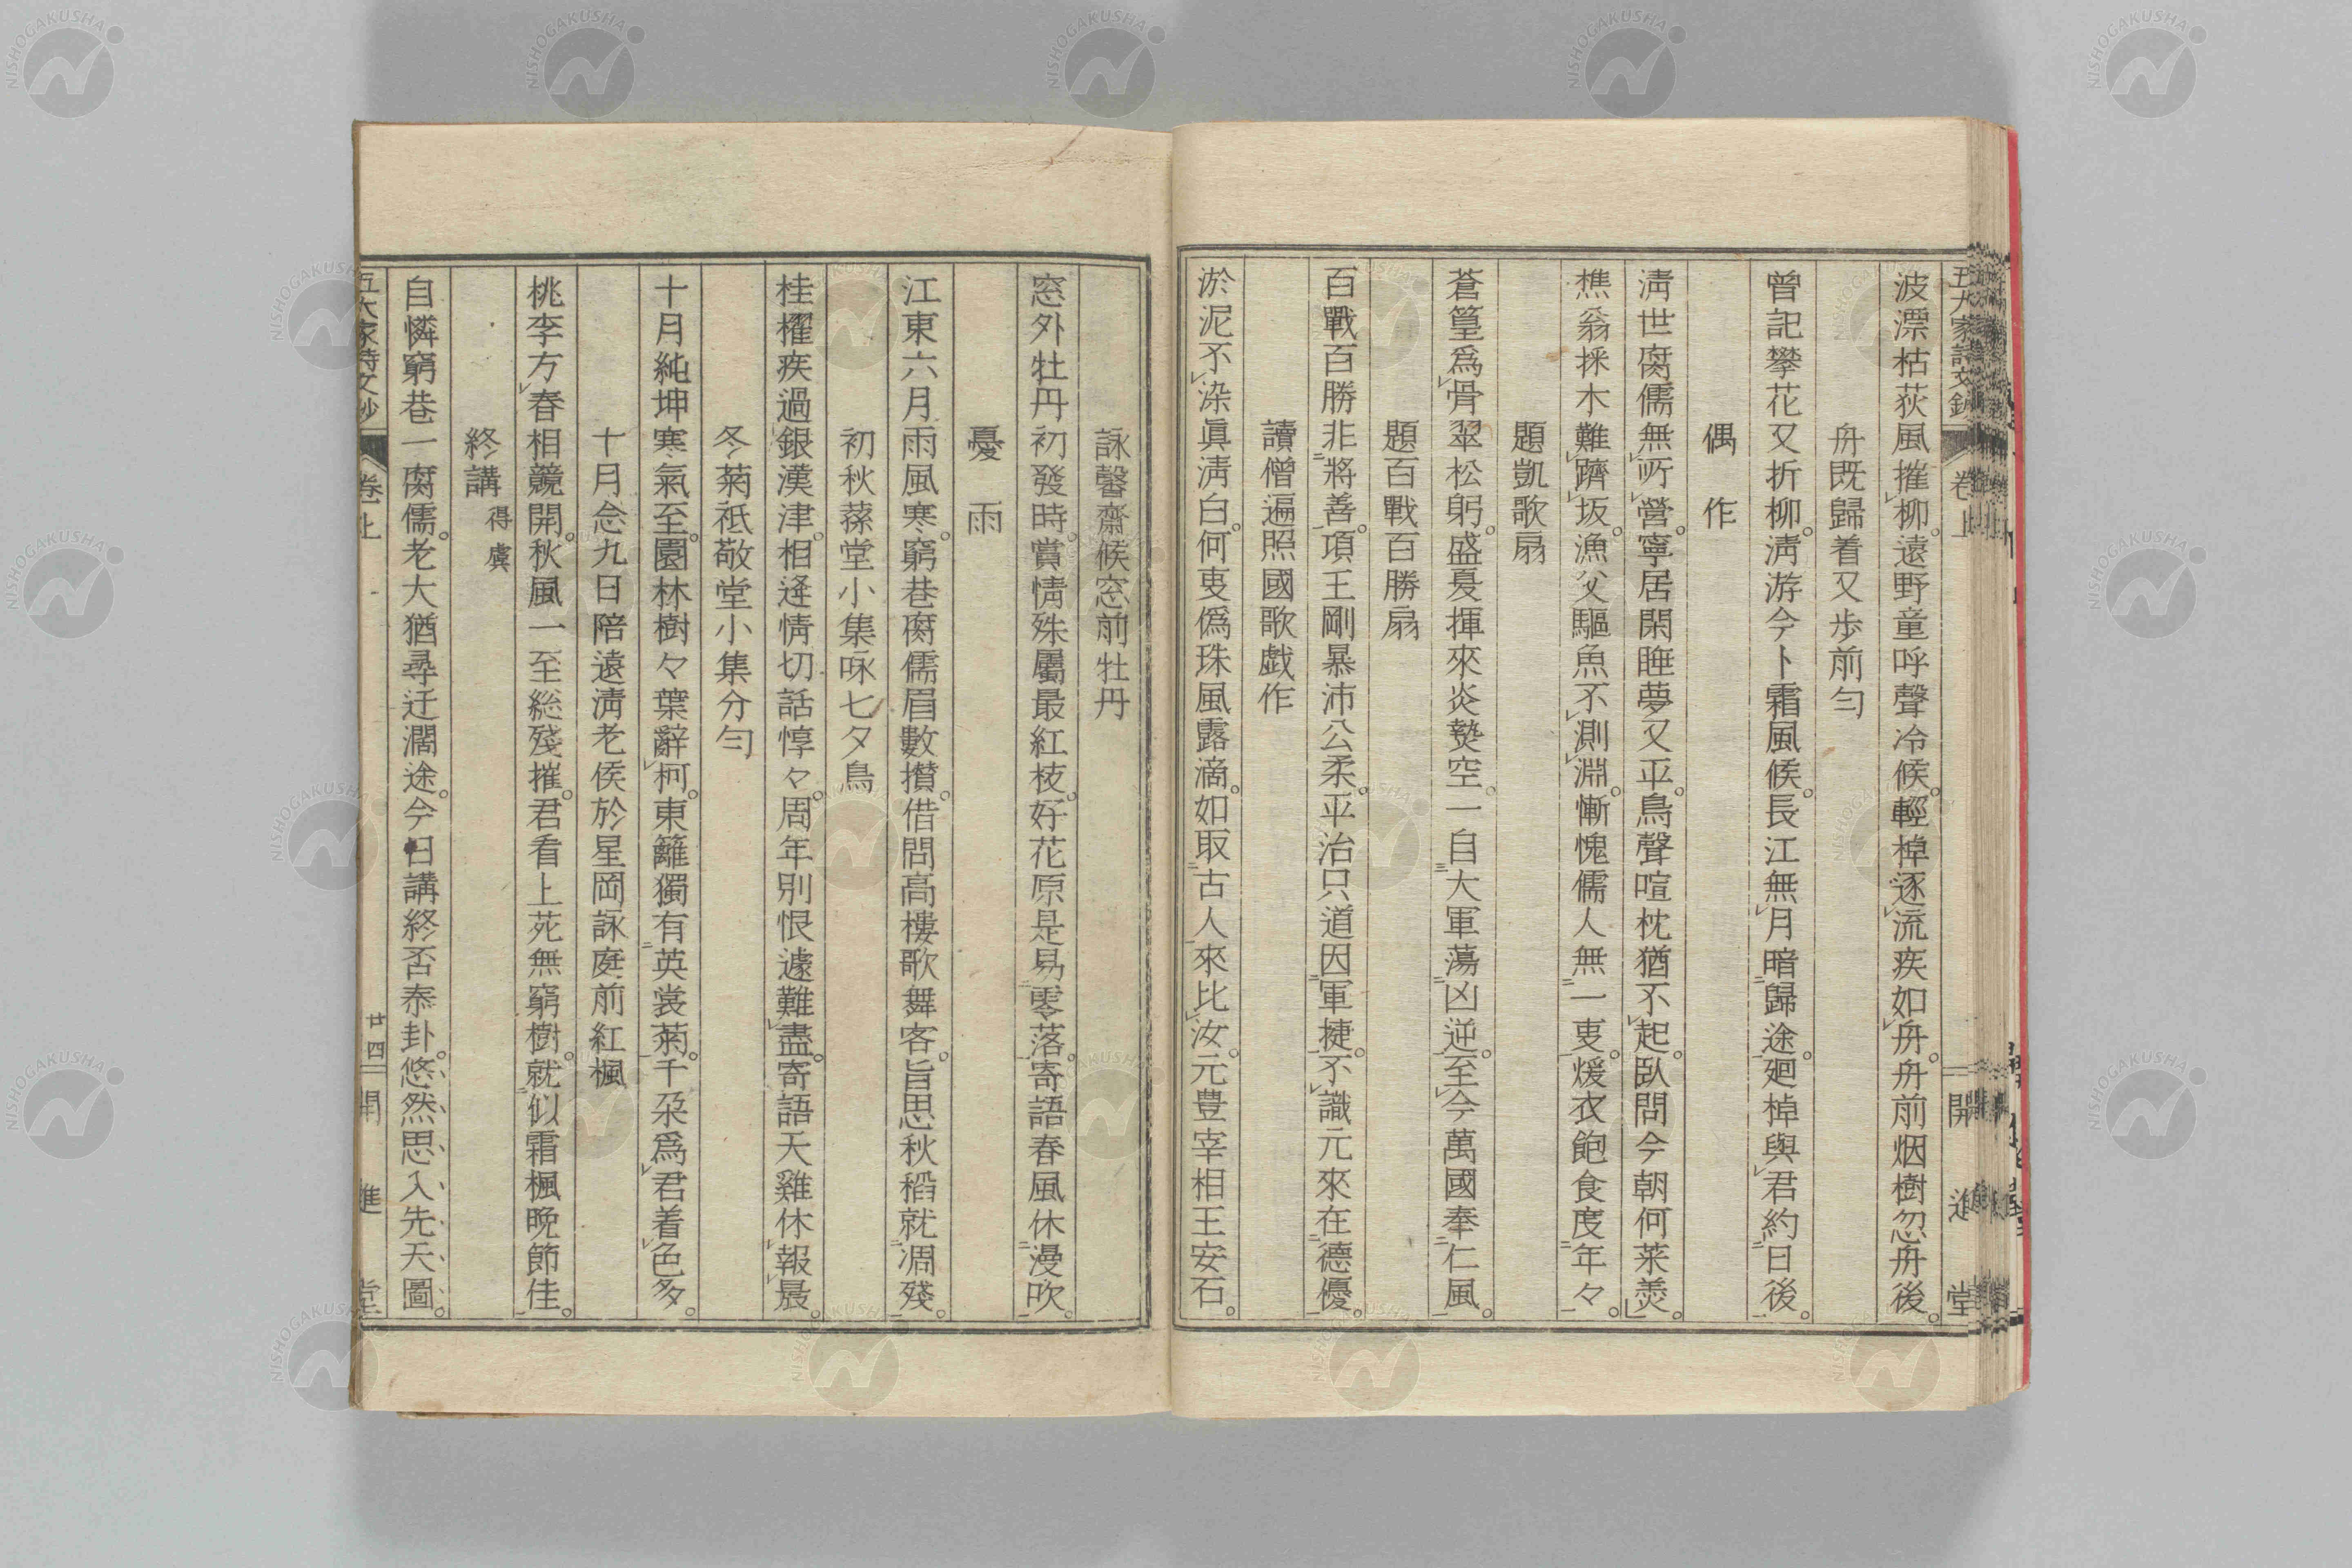 五大家詩文鈔 卷上 開進堂
波漂枯荻風摧柳。遠野童呼聲冷候。輕棹逐流疾如舟。舟前烟樹忽舟後。
舟既歸着又歩前勻
曾記攀花又折柳。淸游今卜霜風候。長江無月暗歸途。廻棹與君約日後。
偶作
淸世腐儒無所營。寧居閑睡夢又平。鳥聲喧枕猶不起。臥問今朝何菜羮。
樵翁採木難躋坂。漁父驅魚不測淵。慚愧儒人無一叓。煖衣飽食度年々。
題凱歌扇
蒼篁爲骨翠松躬。盛夏揮來炎熱空。一自大軍蕩凶逆。至今萬國奉仁風。
題百戰百勝扇
百戰百勝非將善。項王剛暴沛公柔。平治只道因軍捷。不識元來在德優。
讀僧遍照國歌戯作
淤泥不染眞淸白。何叓僞珠風露滴。如取古人來比汝。元豊宰相王安石。
詠馨齋候窓前牡丹
窓外牡丹初發時。賞情殊屬最紅枝。好花原是易零落。寄語春風休漫吹。
憂雨
江東六月雨風寒。窮巷腐儒眉數攢。借問高樓歌舞客。旨思秋稻就凋殘。
初秋蓀堂小集咏七夕鳥
桂櫂疾過銀漢津。相逢情切話惇々。周年別恨遽難盡。寄語天雞休報晨。
冬菊祗敬堂小集分勻
十月純坤寒氣至。園林樹々葉辭柯。東籬獨有英裳菊。千朶爲君着色多。
十月念九日陪遠淸老侯於星岡詠庭前紅楓
桃李方春相競開。秋風一至総殘摧。君看上苑無窮樹。就似霜楓晚節佳。
終講 得虞
自憐窮巷一腐儒。老大猶尋迂濶途。今日講終否泰卦。悠然思入先天圖。
五大家詩文鈔 卷上 廿四 開進堂
NISHOGAKUSHA